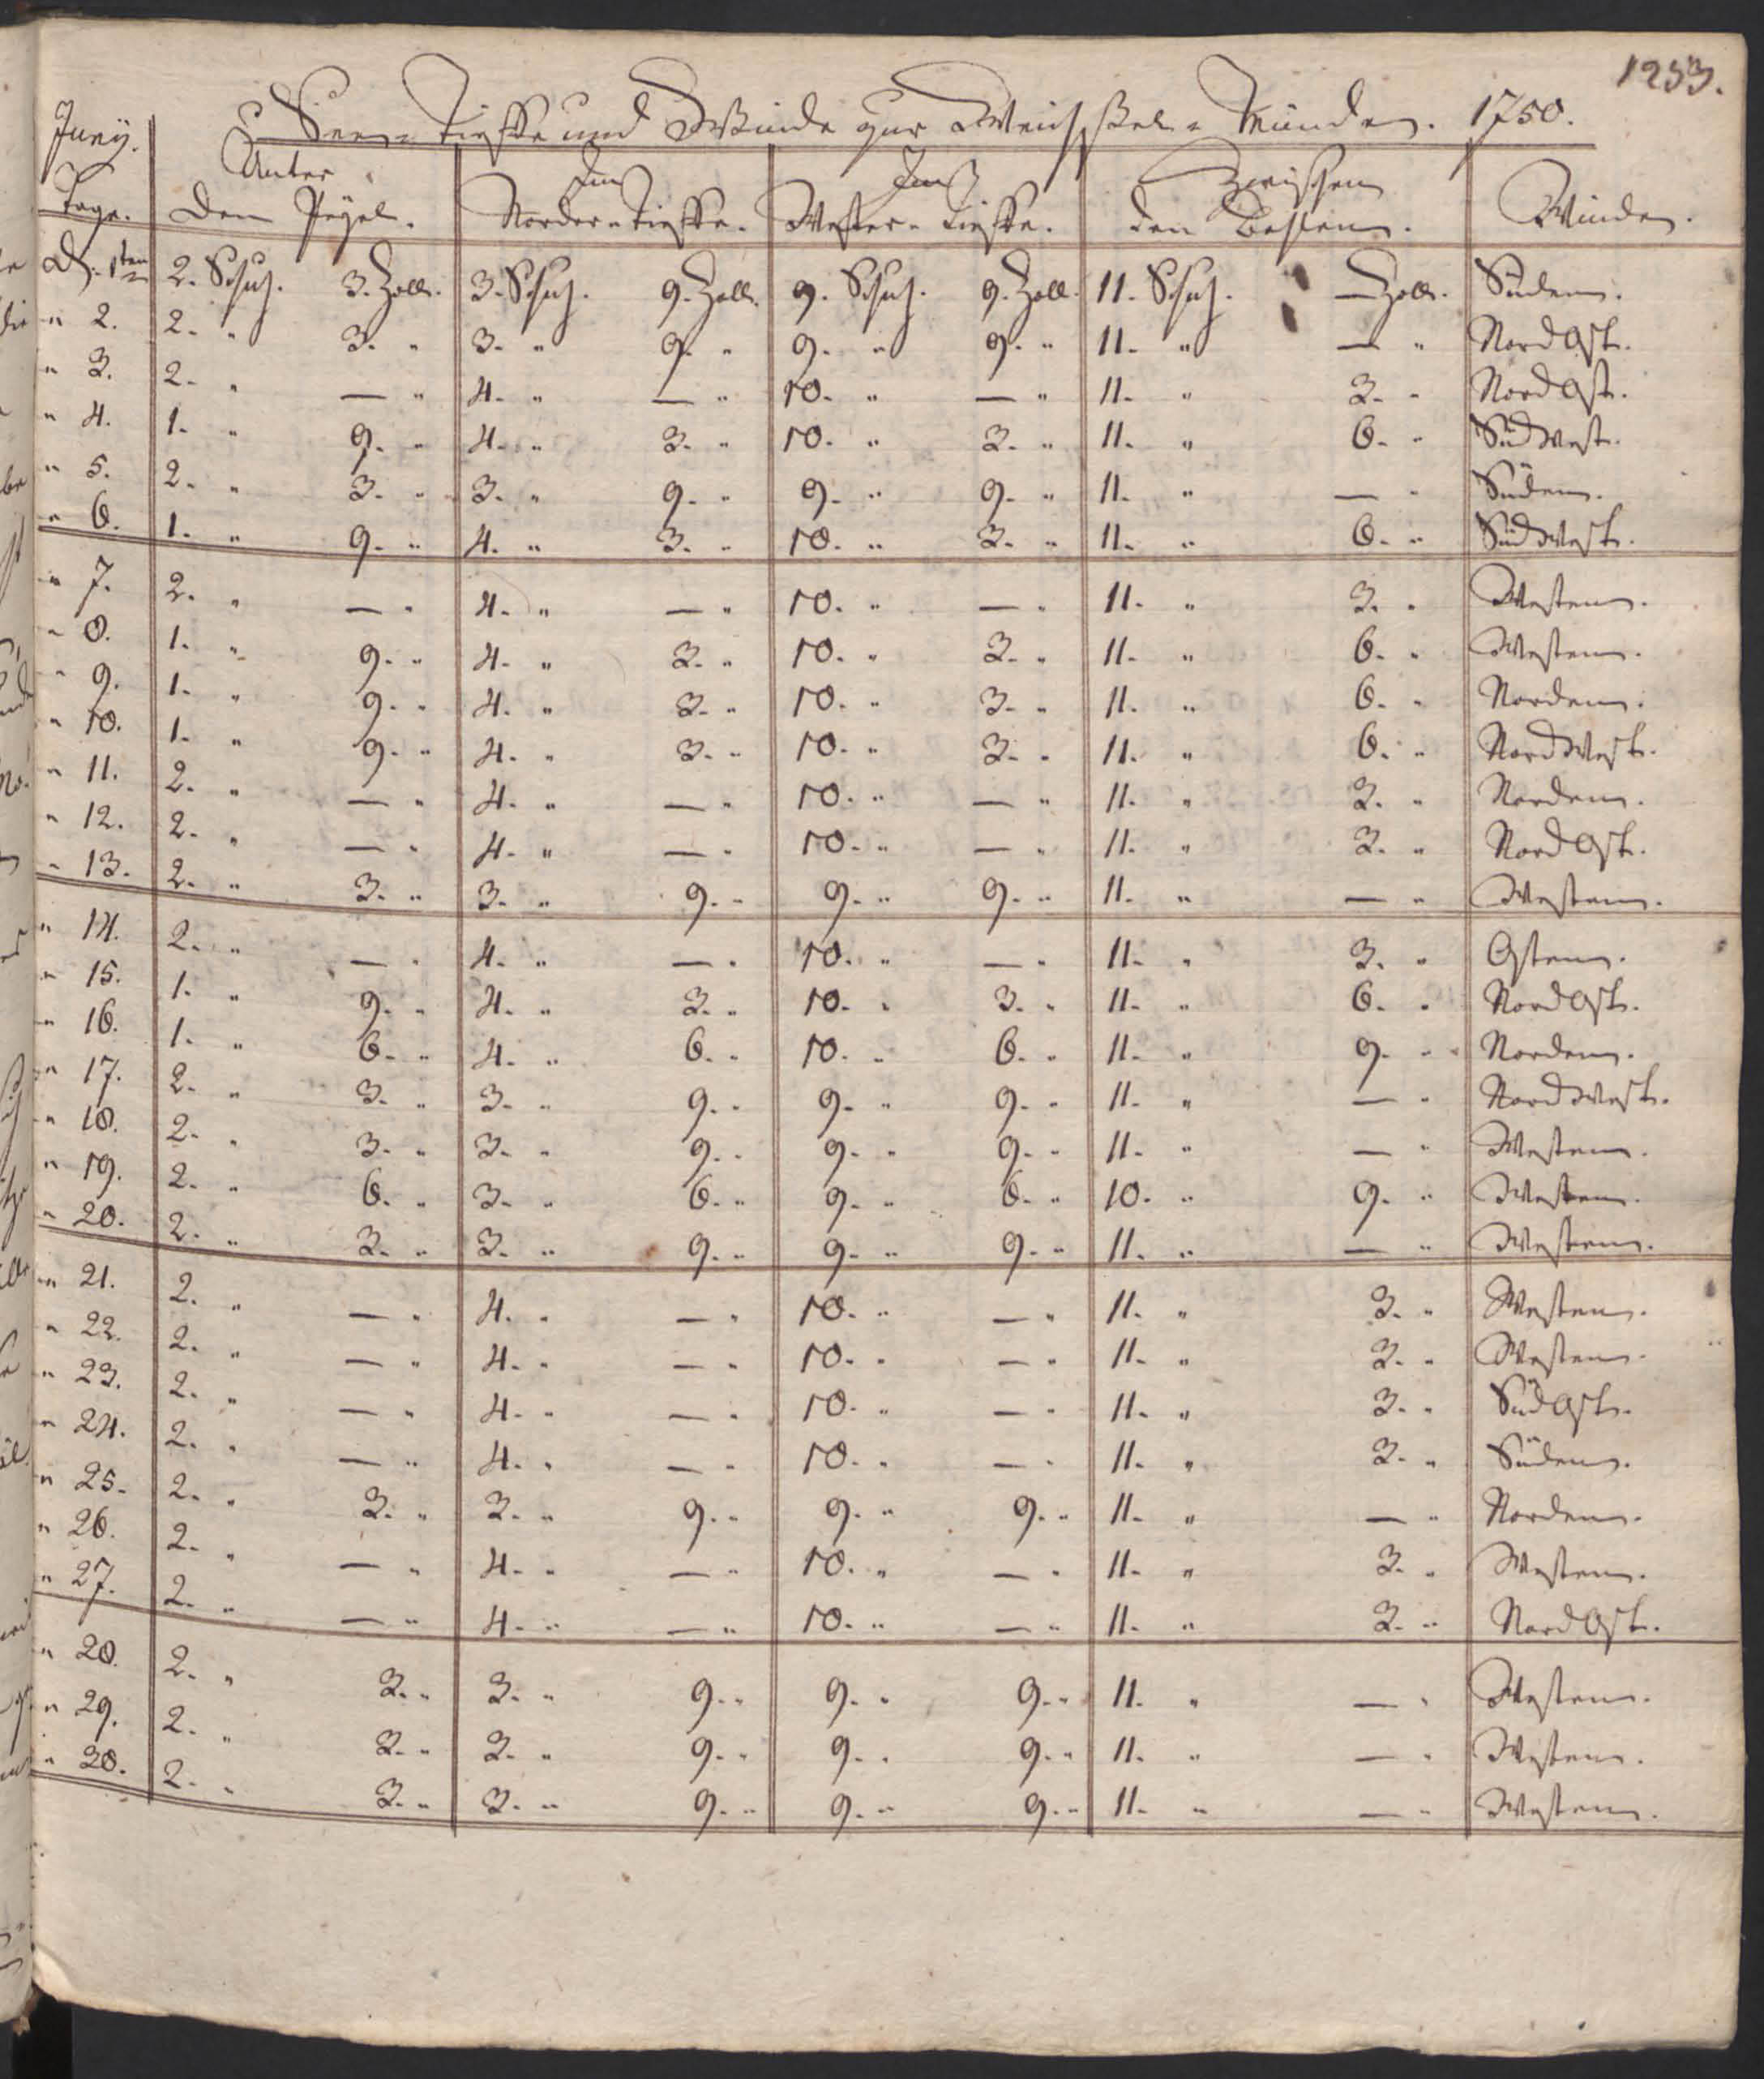 1233.
Seen-Tieffe und Winde zur Weichßel-Münden. 1750.
Juny. Unter Im Im Zwischen
Tage. dem Peyel. Norder-Tieffe. Wester-Tieffe. den Winden.
D. 1ten 2. Schuh. 3. Zoll. 3. Schuh. 9. Zoll. 9. Schuh. 9. Zoll. 11. Schuh. — Zoll. Süden.
" 2. 2. " 3. " 3. " 9. " 9. " 9. " 11. " — " NordOst.
" 3. 2. " — " 4. " — " 10. " — " 11. " 3. " NordOst.
" 4. 1. " 9. " 4. " 3. " 10. " 3. " 11. " 6. " SüdWest.
" 5. 2. " 3. " 3. " 9. " 9. " 9. " 11. " — " Süden.
" 6. 1. " 9. " 4. " 3. " 10. " 3. " 11. " 6. " SüdWest.
" 7. 2. " — " 4. " — " 10. " — " 11. " 3. " Westen.
" 8. 1. " 9. " 4. " 3. " 10. " 3. " 11. " 6. " Westen.
" 9. 1. " 9. " 4. " 3. " 10. " 3. " 11. " 6. " Norden.
" 10. 1. " 9. " 4. " 3. " 10. " 3. " 11. " 6. " NordWest.
" 11. 2. " — " 4. " — " 10. " — " 11. " 3. " Norden.
" 12. 2. " — " 4. " — " 10. " — " 11. " 3. " NordOst.
" 13. 2. " 3. " 3. " 9. " 9. " 9. " 11. " — " Westen.
" 14. 2. " — " 4. " — " 10. " — " 11. " 3. " Osten.
" 15. 1. " 9. " 4. " 3. " 10. " 3. " 11. " 6. " NordOst.
" 16. 1. " 6. " 4. " 6. " 10. " 6. " 11. " 9. " Norden.
" 17. 2. " 3. " 3. " 9. " 9. " 9. " 11. " — " NordWest.
" 18. 2. " 3. " 3. " 9. " 9. " 9. " 11. " — " Westen.
" 19. 2. " 6. " 3. " 6. " 9. " 6. " 10. " 9. " Westen.
" 20. 2. " 3. " 3. " 9. " 9. " 9. " 11. " — " Westen.
" 21. 2. " — " 4. " — " 10. " — " 11. " 3. " Westen.
" 22. 2. " — " 4. " — " 10. " — " 11. " 3. " Westen.
" 23. 2. " — " 4. " — " 10. " — " 11. " 3. " SüdOst.
" 24. 2. " — " 4. " — " 10. " — " 11. " 3. " Süden.
" 25. 2. " 3. " 3. " 9. " 9. " 9. " 11. " — " Norden.
" 26. 2. " — " 4. " — " 10. " — " 11. " 3. " Westen.
" 27. 2. " — " 4. " — " 10. " — " 11. " 3. " NordOst.
" 28. 2. " 3. " 3. " 9. " 9. " 9. " 11. " — " Westen.
" 29. 2. " 3. " 3. " 9. " 9. " 9. " 11. " — " Westen.
" 30. 2. " 3. " 3. " 9. " 9. " 9. " 11. " — " Westen.